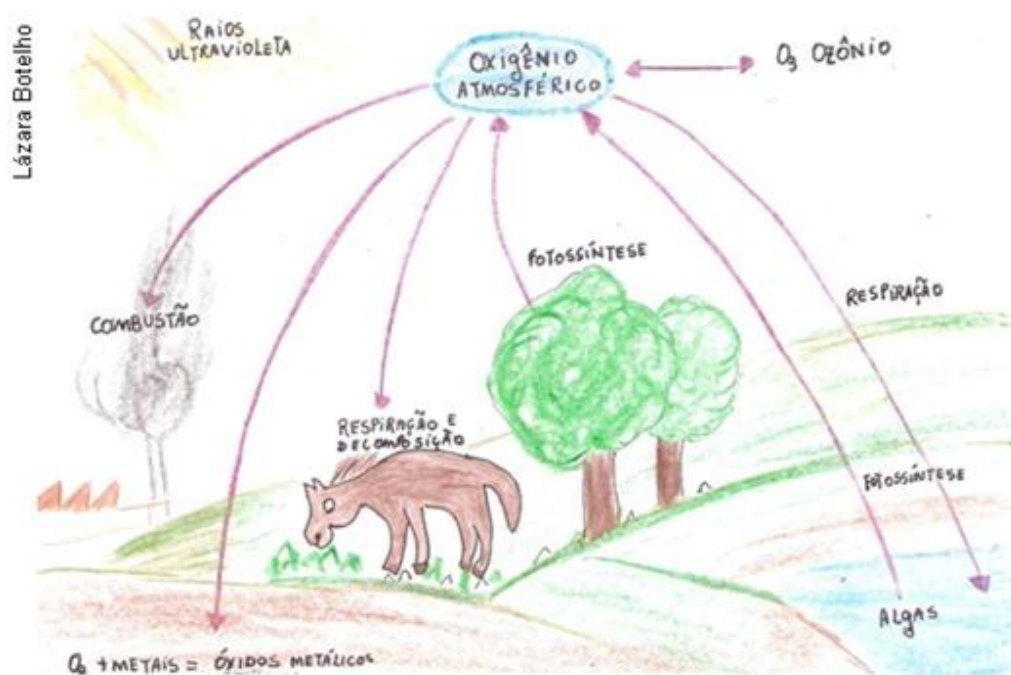 Lázara Botelho
RAIOS
ULTRAVIOLETA
OXIGÊNIO
ATMOSFÉRICO
O₃ OZÔNIO
FOTOSSÍNTESE
COMBUSTÃO
RESPIRAÇÃO
RESPIRAÇÃO E
DECOMPOSIÇÃO
FOTOSSÍNTESE
ALGAS
O₂ + METAIS = ÓXIDOS METÁLICOS